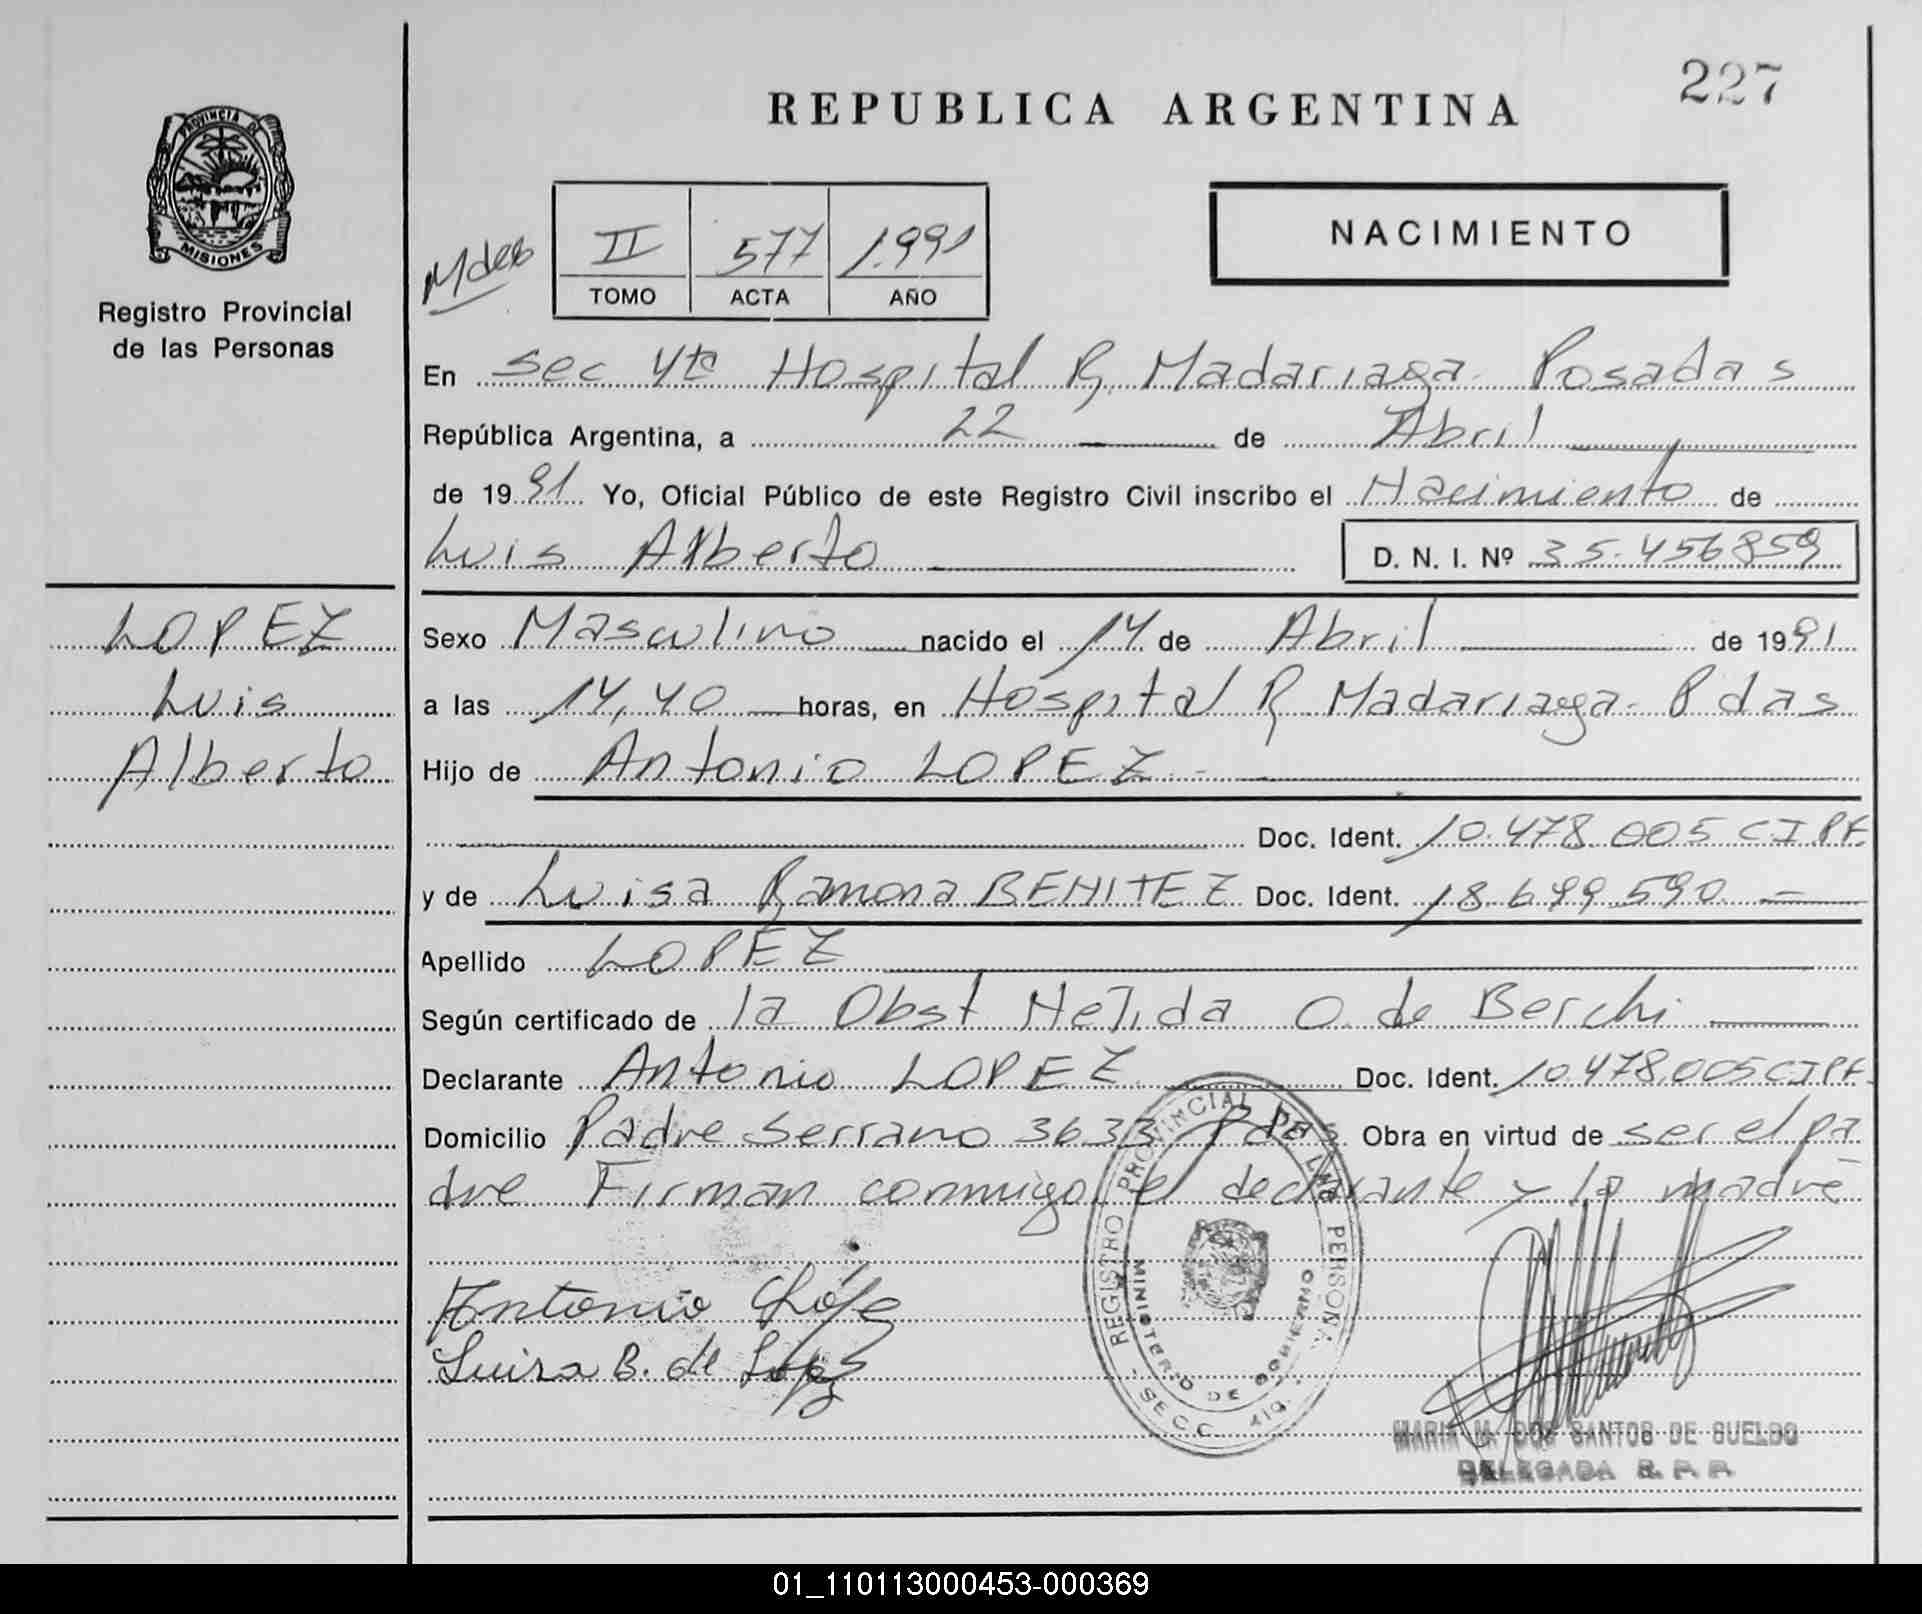 227
REPUBLICA ARGENTINA
PROVINCIA DE
MISIONES
Registro Provincial
de las Personas
NACIMIENTO
II 577 1.991
TOMO ACTA AÑO
En sec 4ta Hospital R. Madariaga. Posadas
República Argentina, a 22 de Abril
de 1991 Yo, Oficial Público de este Registro Civil inscribo el Nacimiento de
Luis Alberto D. N. I. Nº 35.456859
LOPEZ
Luis
Alberto
Sexo Masculino nacido el 14 de Abril de 1991
a las 14,40 horas, en Hospital R. Madariaga. Pdas
Hijo de Antonio LOPEZ
Doc. Ident. 10.478.005 C.I.P.F.
y de Luisa Ramona BENITEZ Doc. Ident. 18.699.590
Apellido LOPEZ
Según certificado de la Obst Nelida O. de Berchi
Declarante Antonio LOPEZ Doc. Ident. 10.478.005 C.I.P.F.
Domicilio Padre Serrano 3633 Pdas Obra en virtud de ser el pa
dre Firman conmigo el declarante y la madre
Antonio López
Luisa B. de López
REGISTRO PROVINCIAL DE LAS PERSONAS
MINISTERIO DE GOBIERNO
- SECC. 4ta. -
MARIA M. DOS SANTOS DE SUELDO
DELEGADA R. P. P.
01_110113000453-000369